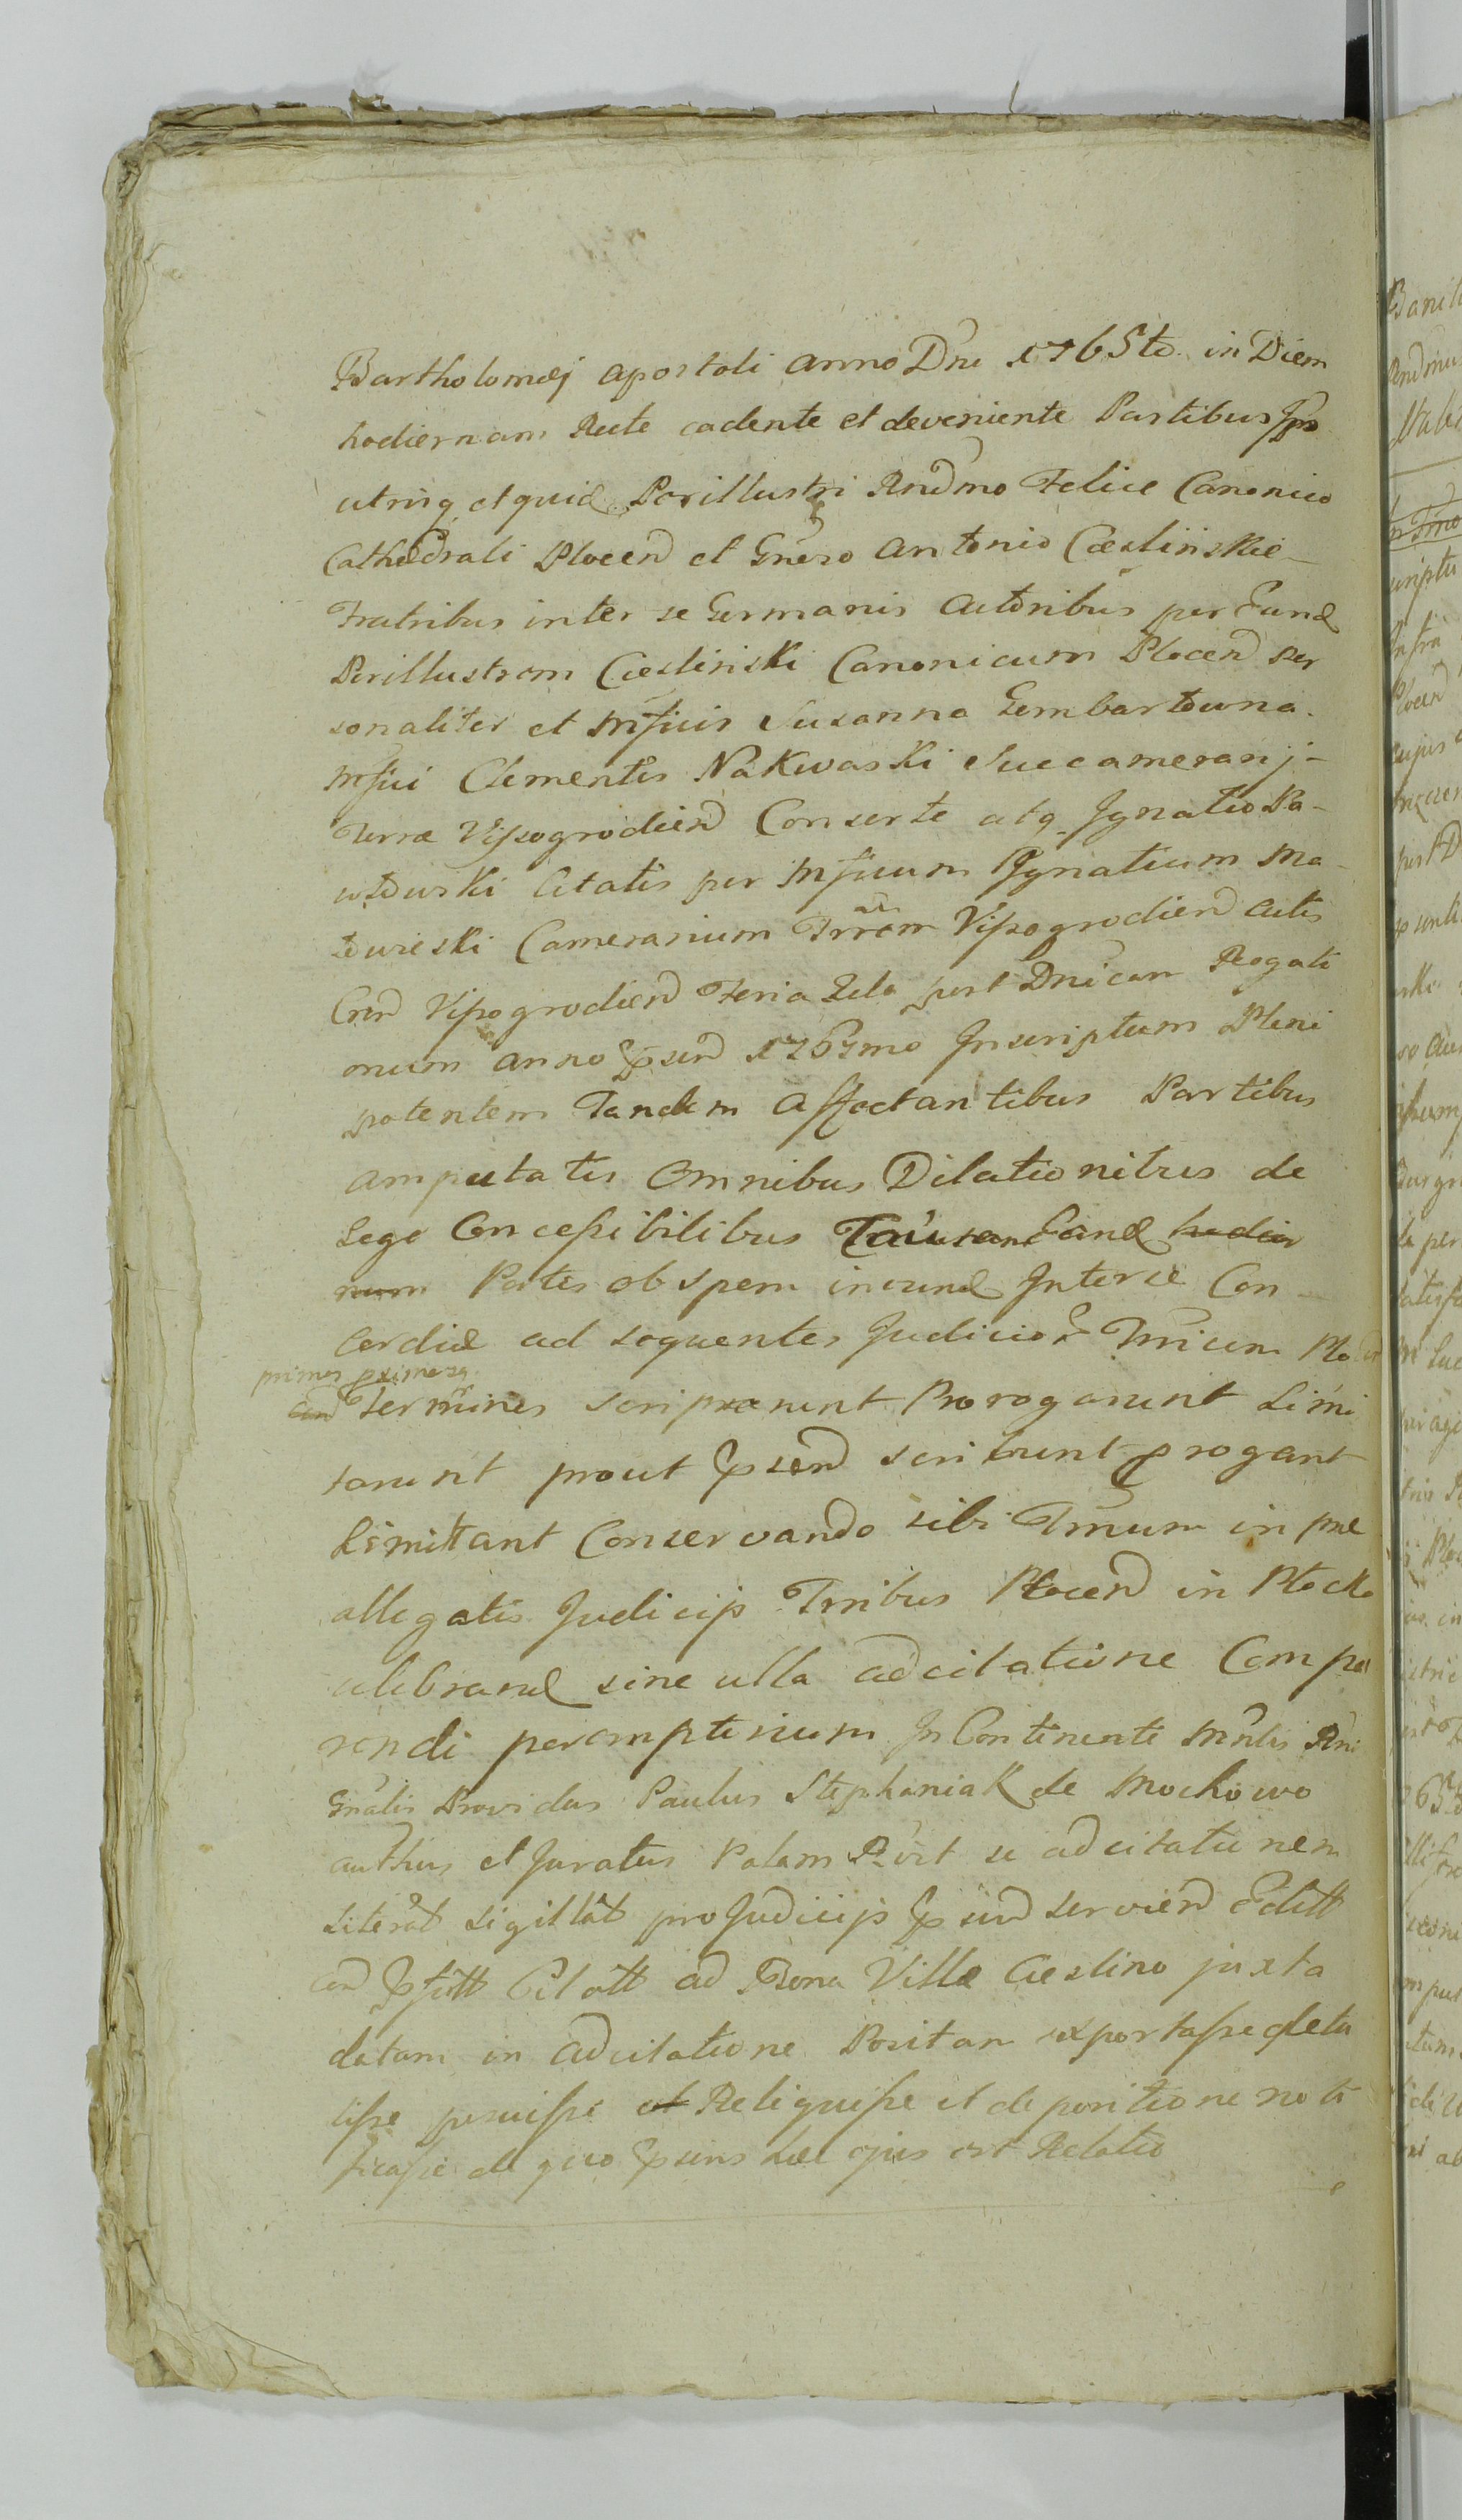 Bartholomæj apostoli anno Dni 1765to. in Diem
hodiernam Recte cadente et deveniente Partibus Ipso
utrinq et quid Perillustri Rndmo Felice Canonico
Cathedrali Plocen et Gneroso Antonio Cieslinskie
Fratribus inter se Germanis Actoribus per Eund
Perillustrem Ciesliński Canonicum Plocen Per
sonaliter et Mfficis Susanna Gembartowna.
Mffici Clementis Nakwaski Succamerarij
Terræ Vissogrodien Consorte atq Ignatio Pa-
włowski Citatis per Mfficum Ignatium Ma-
Camerarium Trrarum Vissogrodien Actis
Cren Vissogrodien Feria 2da post Dnicam Rogati
onum anno Psen 1767mo Inscriptum Pleni
potentem Tandem Affectantibus Partibus
amputatis Omnibus Dilationibus de
Lege Concessibilibus Causam Eand hodier
num Partes ob spem ineund Inter se Con-
cordiæ ad sequentes Judicior Trricum Plocen
primos proximosq
Terminos scripserunt Prorogarunt Limi
tarunt prout Psend scribunt progant
Limittant Conservando sibi Trnum in præ
allegatis Judicijs Trribus Plocen in Plocko
celebrand sine ulla adcitatione Compa
rendi peremptorium In Continenti Mnlis Rni
Gnalis Providus Paulus Stephaniak de Mochowo
authus et Juratus Palam Rvit se adcitationem
Literat Sigillat pro Judicijs Psend servien Editt
Citatt ad Bona Villæ Cieslino juxta
datam in adcitatione Positam exportasse detu
lisse posuisse et Reliquisse et de positione noti
ficasse de quo Psens hæc ejus est Relatio